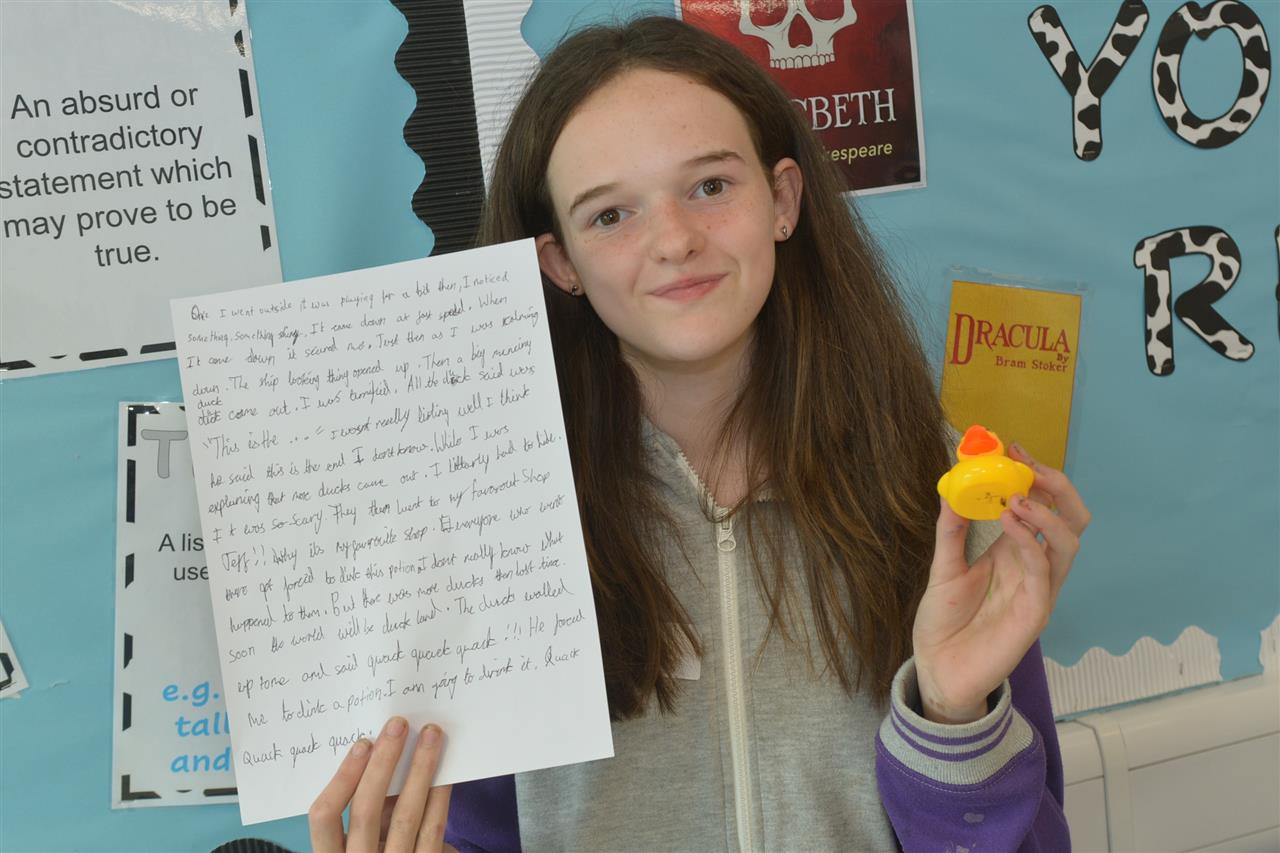 An absurd or
contradictory
statement which
may prove to be
true.
A lis
use
e.g.
tall
and
CBETH
kespeare
YO
RI
DRACULA
By
Bram Stoker
I went outside it was playing for a bit then, I noticed
something. something shiny. It came down at fast speed. When
It came down it scared me. Just then as I was calming
down. The ship looking thing opened up. Then a big mencing
duck
came out. I was terrified. All the duck said was
"This is the ...." I wasnt really listing well I think
he said this is the end I dont know. While I was
explaining that more ducks came out. I litterly had to hide.
It was so scary. They then went to my favorout shop
Jeff!! why its my favourite shop. Everyone who went
there got forced to dink this potion I dont really know what
happened to them. But there was more ducks then last time.
Soon the world will be duck land. The ducks walked
up to me and said quack quack quack!!! He forced
me to dink a potion. I am going to drink it. Quack
Quack quack quack.